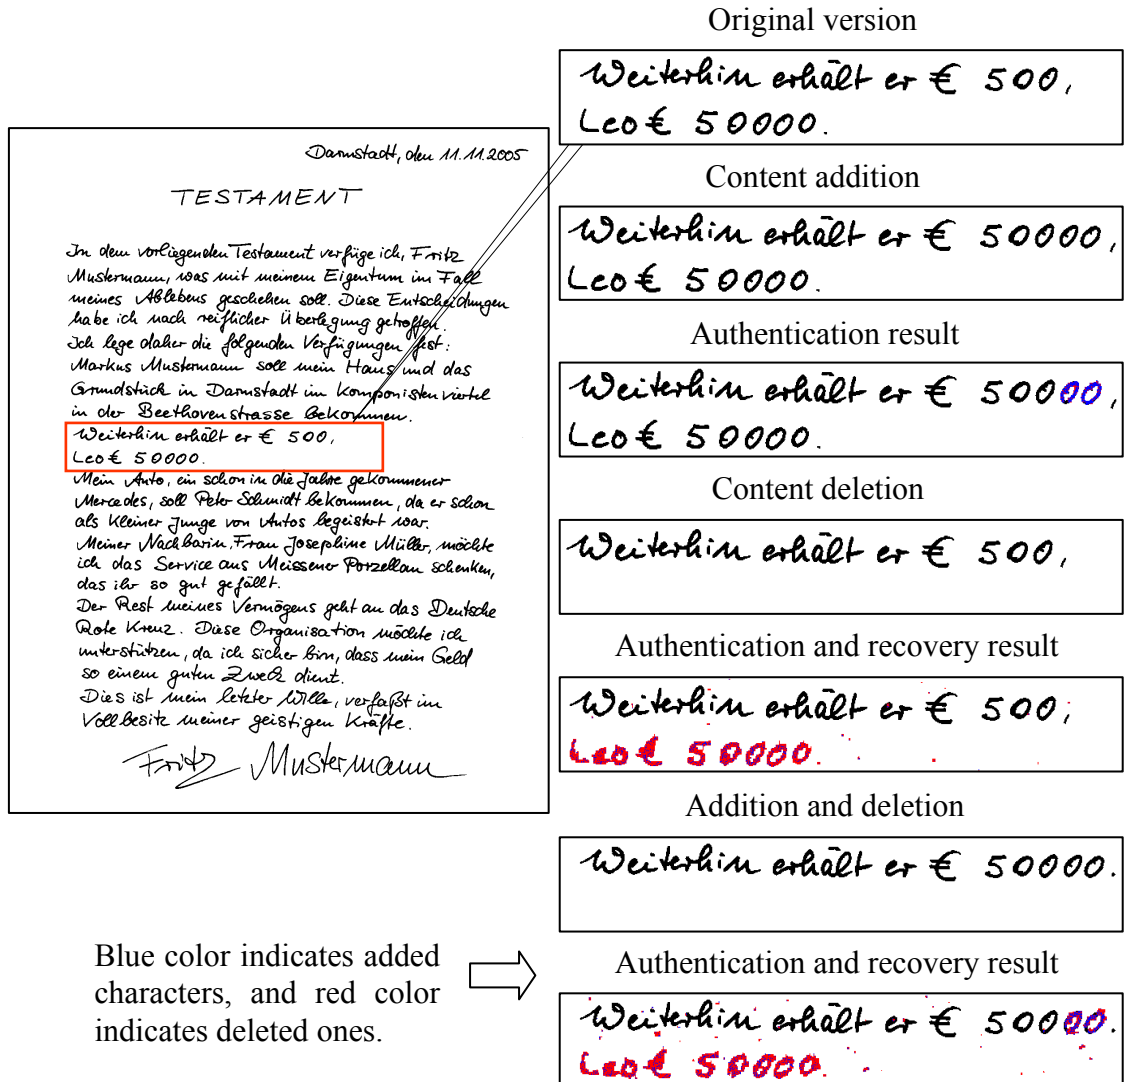 Darmstadt, den 11.11.2005
TESTAMENT
In dem vorliegenden Testament verfüge ich, Fritz
Mustermann, was mit meinem Eigentum im Fall
meines Ablebens geschehen soll. Diese Entscheidungen
habe ich nach reiflicher Überlegung getroffen.
Ich lege daher die folgenden Verfügungen fest:
Markus Mustermann soll mein Haus und das
Grundstück in Darmstadt im Komponistenviertel
in der Beethovenstrasse bekommen.
Weiterhin erhält er € 500,
Leo € 50000.
Mein Auto, ein schon in die Jahre gekommener
Mercedes, soll Peter Schmidt bekommen, da er schon
als kleiner Junge von Autos begeistert war.
Meiner Nachbarin, Frau Josephine Müller, möchte
ich das Service aus Meissener Porzellan schenken,
das ihr so gut gefällt.
Der Rest meines Vermögens geht an das Deutsche
Rote Kreuz. Diese Organisation möchte ich
unterstützen, da ich sicher bin, dass mein Geld
so einem guten Zweck dient.
Dies ist mein letzter Wille, verfaßt im
Vollbesitz meiner geistigen Kräfte.
Fritz Mustermann
Original version
Weiterhin erhält er € 500,
Leo € 50000.
Content addition
Weiterhin erhält er € 50000,
Leo € 50000.
Authentication result
Weiterhin erhält er € 50000,
Leo € 50000.
Content deletion
Weiterhin erhält er € 500,
Authentication and recovery result
Weiterhin erhält er € 500,
Leo € 50000.
Addition and deletion
Weiterhin erhält er € 50000.
Authentication and recovery result
Weiterhin erhält er € 50000.
Leo € 50000.
Blue color indicates added
characters, and red color
indicates deleted ones.